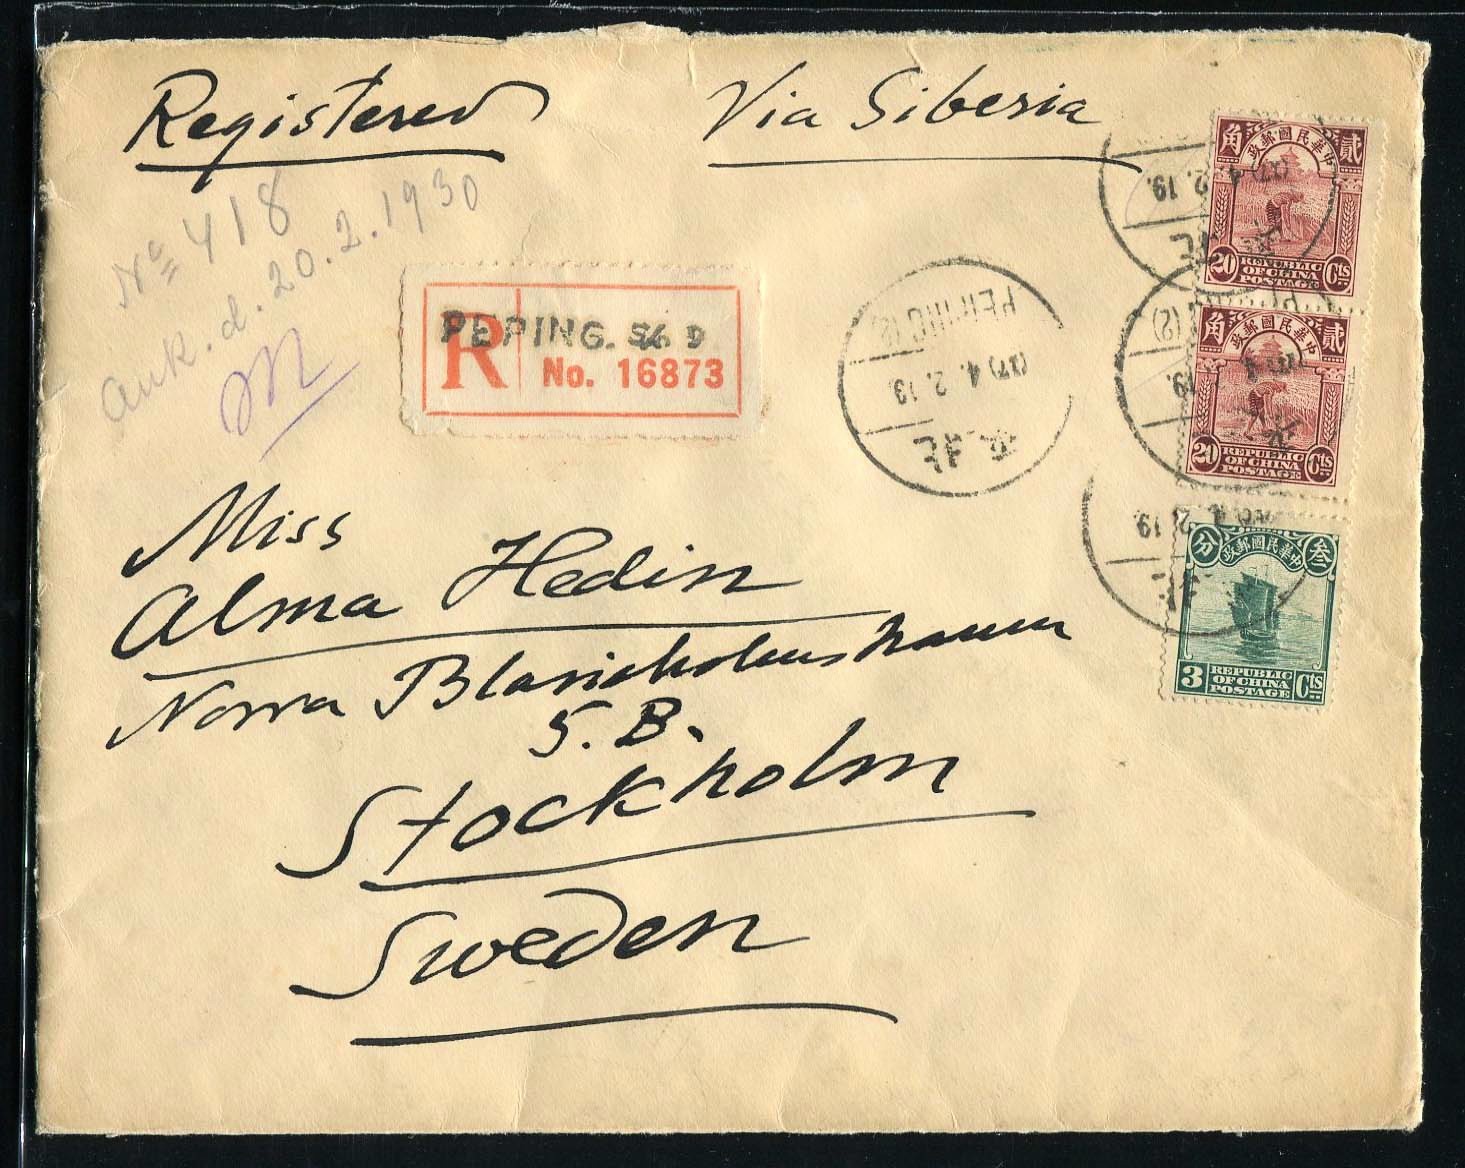 Registered
Via Siberia
No 418
ank. d. 20.2.1930
R
PEPING. S/6 D
No. 16873
PEIPING (2)
(17) 4. 2. 19.
北平
角 中華民國郵政 貳
20 REPUBLIC OF CHINA POSTAGE Cts
角 中華民國郵政 貳
20 REPUBLIC OF CHINA POSTAGE Cts
分 中華民國郵政 叁
3 REPUBLIC OF CHINA POSTAGE Cts
Miss
Alma Hedin
Norra Blasieholmshamnen
5. B.
Stockholm
Sweden